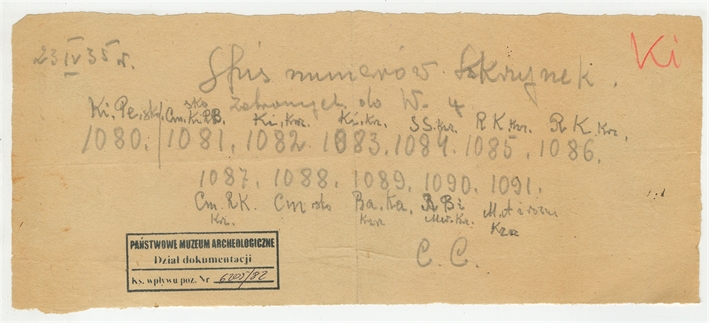 23 IV 35 r.
Ki
Spis numerów Skrzynek.
zebranych do W. 4
Ki. Pe. sko Cm. Ki. P.B. Ki. Krz. Ki. Kz. SS. Krz. R K. Krz. R. K. Krz.
1080. 1081. 1082. 1083. 1084. 1085. 1086.
1087. 1088. 1089. 1090. 1091.
Cm. R.K. Cm sko Ba. Ka.
Krz. Krz
C. C.
PAŃSTWOWE MUZEUM ARCHEOLOGICZNE
Dział dokumentacji
Ks. wpływu poz. Nr 6205/82